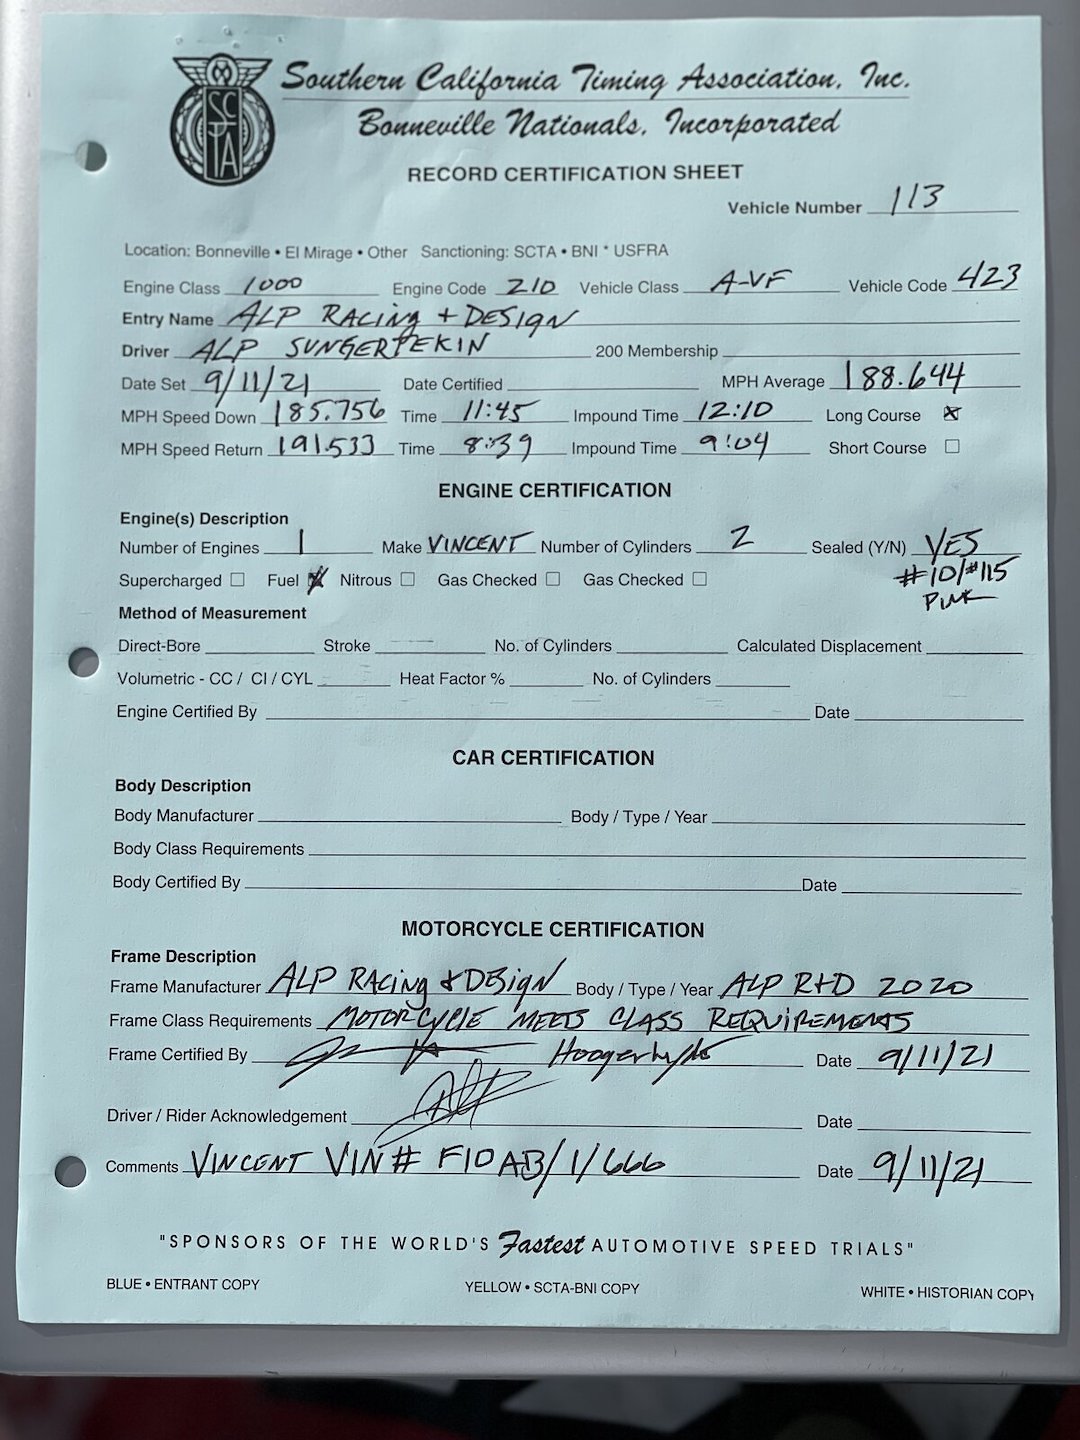 SCTA
Southern California Timing Association, Inc.
Bonneville Nationals, Incorporated
RECORD CERTIFICATION SHEET
Vehicle Number 113
Location: Bonneville • El Mirage • Other Sanctioning: SCTA • BNI * USFRA
Engine Class 1000 Engine Code 210 Vehicle Class A-VF Vehicle Code 423
Entry Name ALP RACING + DESIGN
Driver ALP SUNGERTEKIN 200 Membership
Date Set 9/11/21 Date Certified MPH Average 188.644
MPH Speed Down 185.756 Time 11:45 Impound Time 12:10 Long Course
MPH Speed Return 191.533 Time 8:39 Impound Time 9:04 Short Course
ENGINE CERTIFICATION
Engine(s) Description
Number of Engines 1 Make VINCENT Number of Cylinders 2 Sealed (Y/N) YES
Supercharged Fuel Nitrous Gas Checked Gas Checked #10/#115
PINK
Method of Measurement
Direct-Bore Stroke No. of Cylinders Calculated Displacement
Volumetric - CC / CI / CYL Heat Factor % No. of Cylinders
Engine Certified By Date
CAR CERTIFICATION
Body Description
Body Manufacturer Body / Type / Year
Body Class Requirements
Body Certified By Date
MOTORCYCLE CERTIFICATION
Frame Description
Frame Manufacturer ALP RACING & DESIGN Body / Type / Year ALP R+D 2020
Frame Class Requirements MOTORCYCLE MEETS CLASS REQUIREMENTS
Frame Certified By Date 9/11/21
Driver / Rider Acknowledgement Date
Comments VINCENT VIN# F10AB/1/666 Date 9/11/21
"SPONSORS OF THE WORLD'S Fastest AUTOMOTIVE SPEED TRIALS"
BLUE • ENTRANT COPY YELLOW • SCTA-BNI COPY WHITE • HISTORIAN COPY